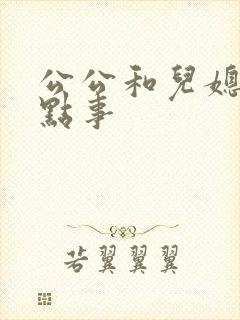 公公和兒媳
點事
若翼翼翼